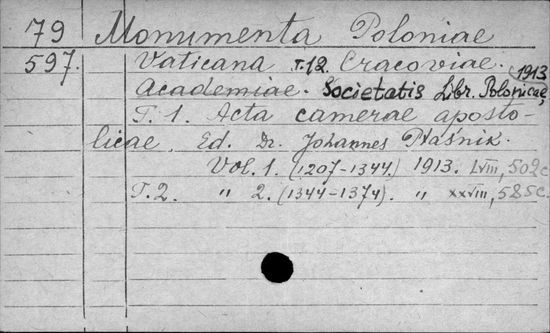 79 Monumenta Poloniae
597. Vaticana T.12 Cracoviae. 1913
Academiae. Societatis Libr. Polonicae,
T. 1. Acta camerae aposto-
licae. Ed. Dr. Johannes Ptaśnik.
Vol. 1. (1207-1344.) 1913. LVIII, 502 c
T. 2. " 2. (1344-1374). " XXVIII, 585 c.